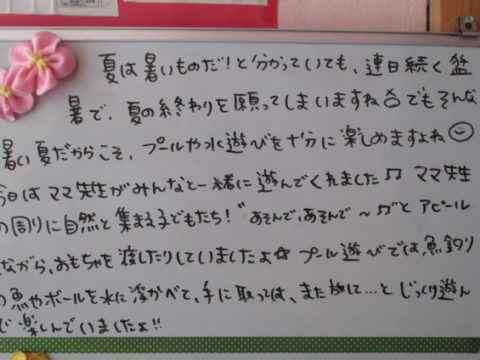 夏は暑いものだ！と分かっていても、連日続く盆
暑で、夏の終わりを願ってしまいますね でもそんな
暑い夏だからこそ、プールや水遊びを十分に楽しめますよね☺
今日はママ先生がみんなと一緒に遊んでくれました♫ ママ先生
の周りに自然と集まる子どもたち！"あそんで、あそんで〜♫"と アピール
しながら、おもちゃを渡したりしていましたよ☆ プール遊びでは、魚釣り
の魚やボールを水に浮かべて、手に取っては、また放して…と じっくり遊ん
で楽しんでいましたよ!!